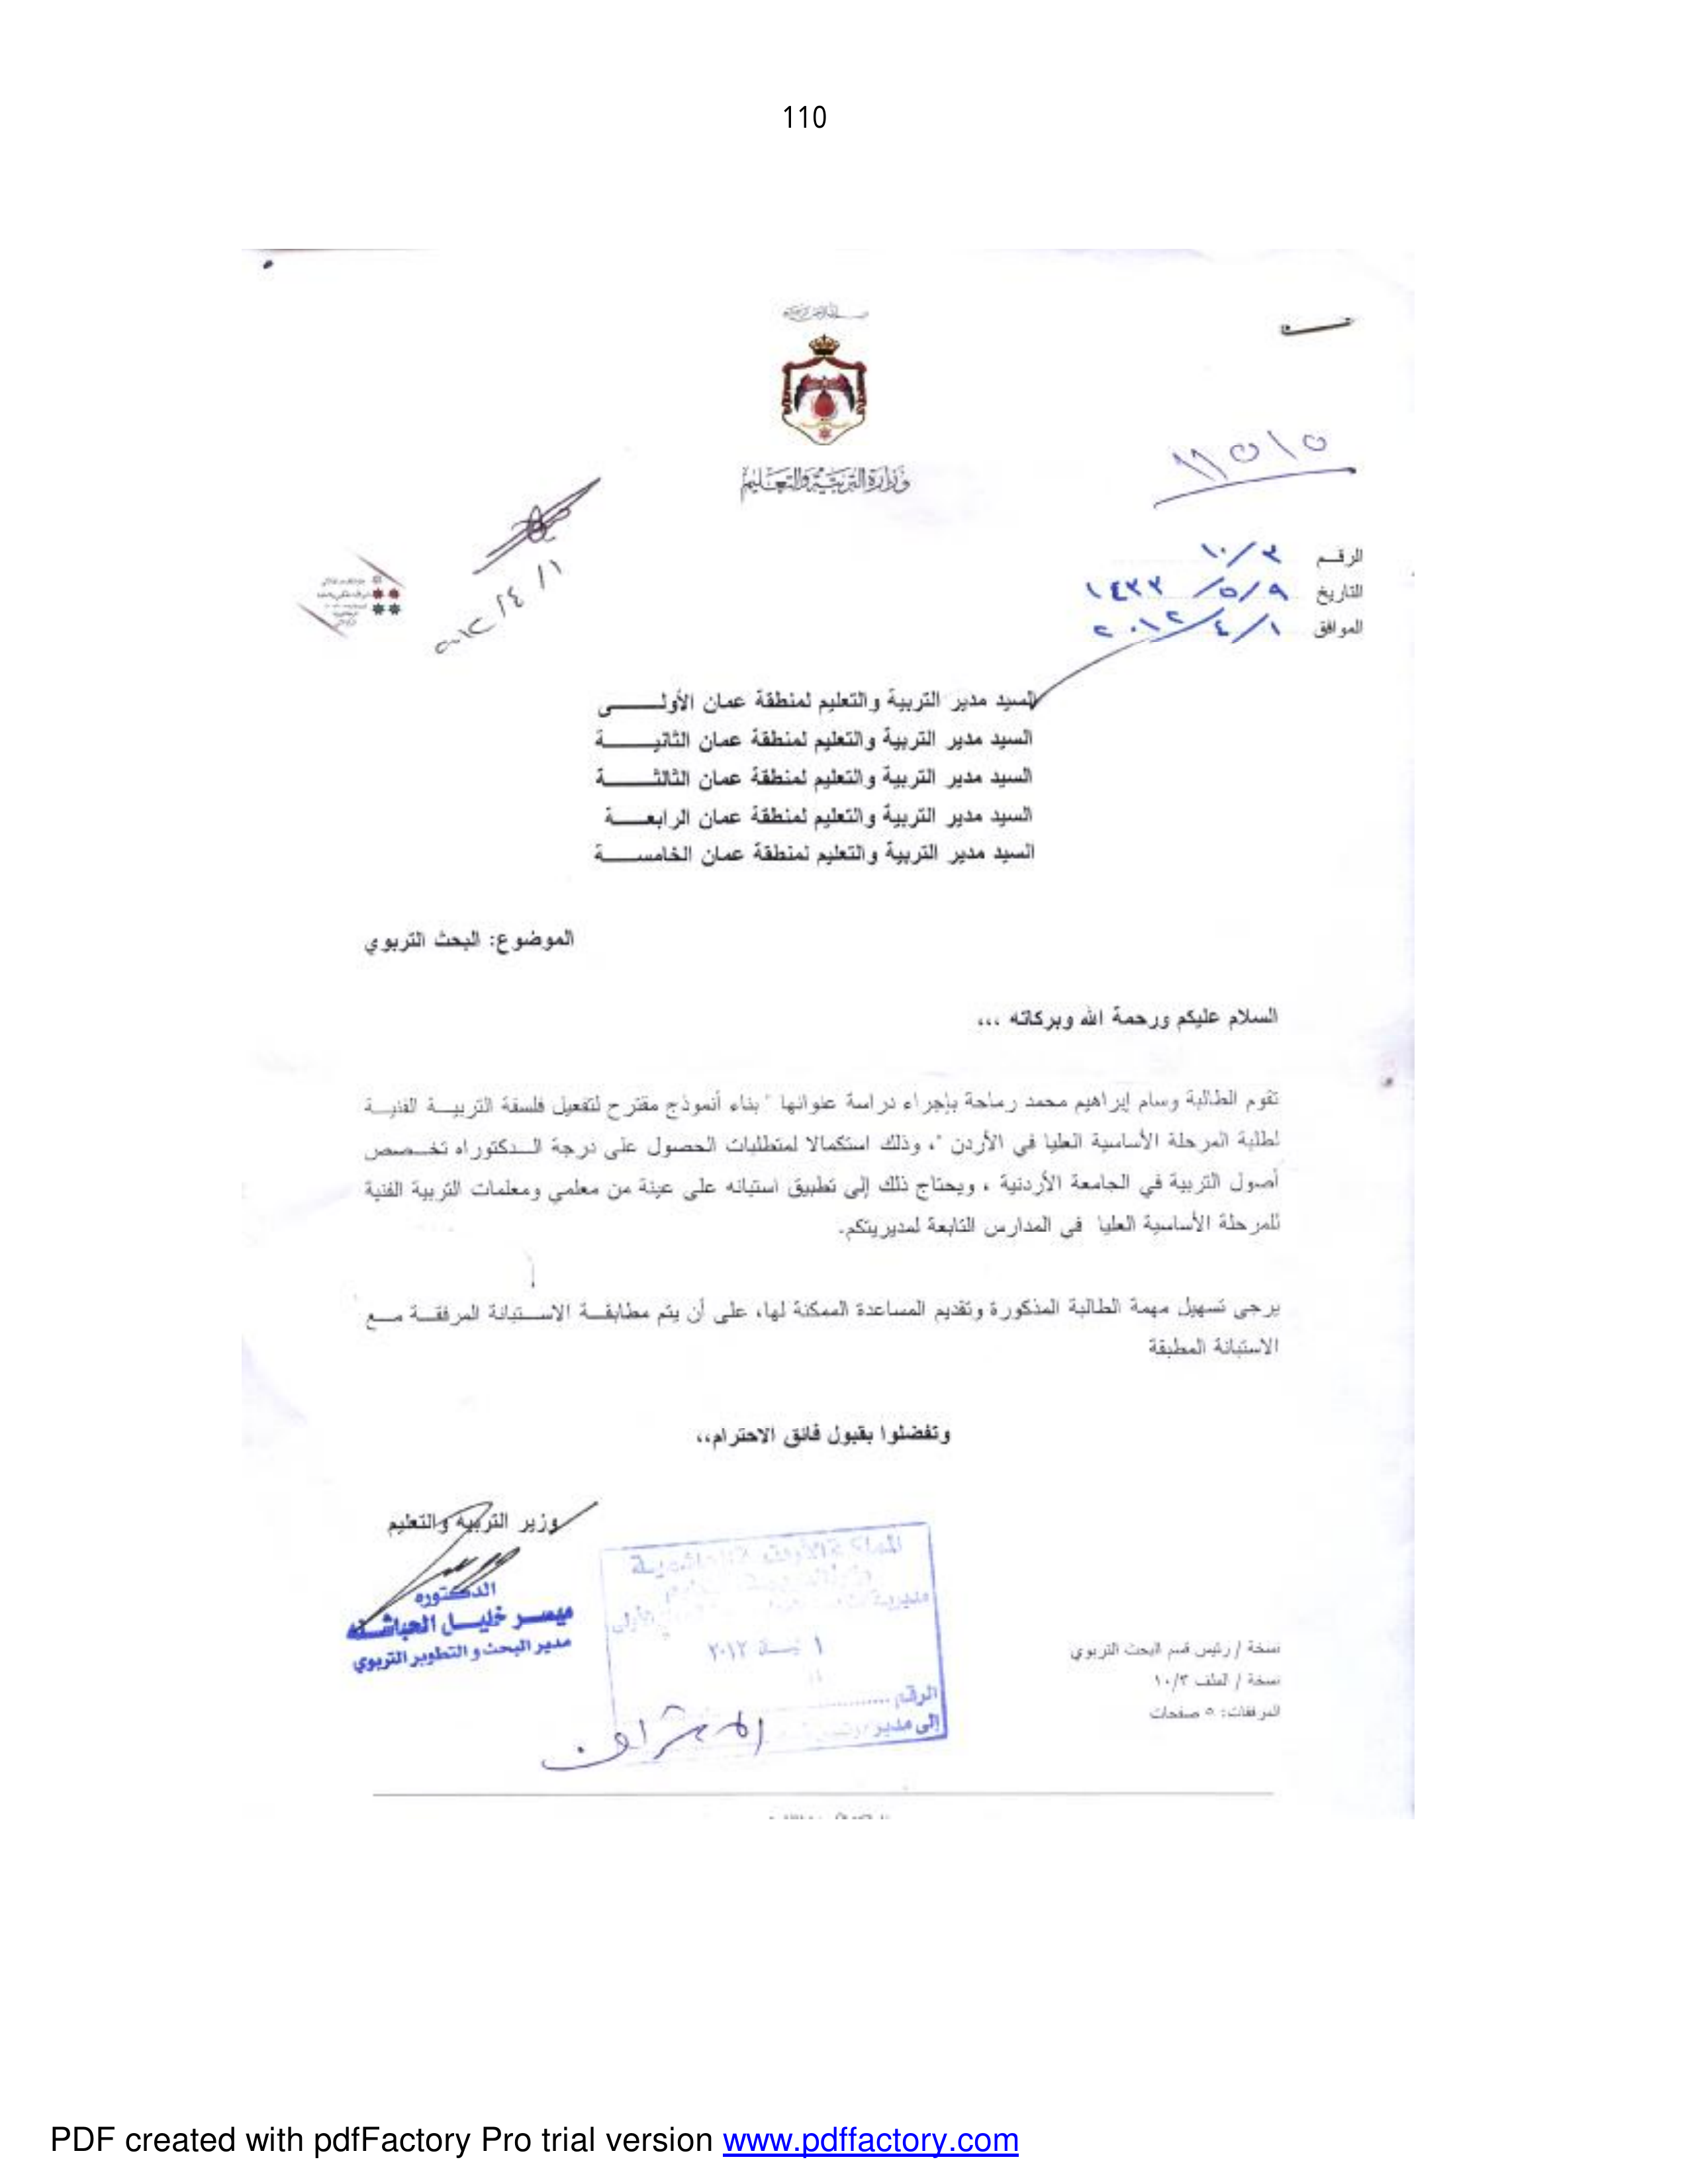 110
وزارة التربية والتعليم
الرقم ١٠/٣
التاريخ ٩/٥/١٤٣٣
الموافق ١/٤/٢٠١٢
٢٠١٢/٤/١
السيد مدير التربية والتعليم لمنطقة عمان الأولى
السيد مدير التربية والتعليم لمنطقة عمان الثانية
السيد مدير التربية والتعليم لمنطقة عمان الثالثة
السيد مدير التربية والتعليم لمنطقة عمان الرابعة
السيد مدير التربية والتعليم لمنطقة عمان الخامسة
الموضوع: البحث التربوي
السلام عليكم ورحمة الله وبركاته ...
تقوم الطالبة وسام إبراهيم محمد رماحة بإجراء دراسة عنوانها " بناء أنموذج مقترح لتفعيل فلسفة التربية الفنية
لطلبة المرحلة الأساسية العليا في الأردن "، وذلك استكمالا لمتطلبات الحصول على درجة الدكتوراه تخصص
أصول التربية في الجامعة الأردنية ، ويحتاج ذلك إلى تطبيق استبانه على عينة من معلمي ومعلمات التربية الفنية
للمرحلة الأساسية العليا في المدارس التابعة لمديريتكم.
يرجى تسهيل مهمة الطالبة المذكورة وتقديم المساعدة الممكنة لها، على أن يتم مطابقة الاستبانة المرفقة مع
الاستبانة المطبقة
وتفضلوا بقبول فائق الاحترام،،
وزير التربية والتعليم
الدكتوره
ميسر خليل العباشنه
مدير البحث والتطوير التربوي
مديرية
١ ٢٠١٢
الرقم
إلى مدير
نسخة / رئيس قسم البحث التربوي
نسخة / الملف ١٠/٣
المرفقات: ٥ صفحات
PDF created with pdfFactory Pro trial version www.pdffactory.com